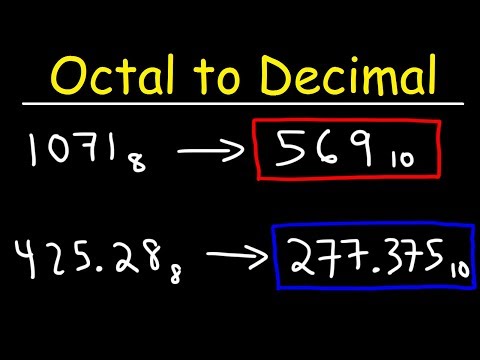 Octal to Decimal
1071₈ → 569₁₀
425.28₈ → 277.375₁₀